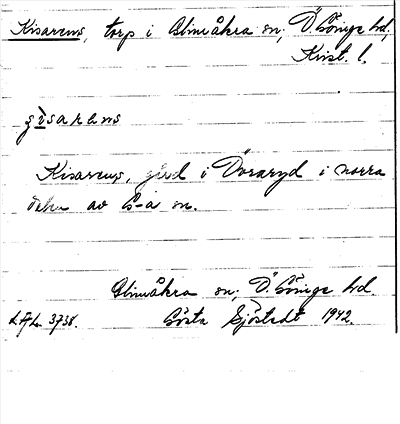 Kisarens, torp i Glimåkra sn, Ö. Göinge hd,
Krist. l.
gi̱sarens
Kisarens, gård i Vesaryd i norra
delen av G-a sn.
Glimåkra sn, Ö. Göinge hd.
3738. Gösta Sjöstedt 1942.